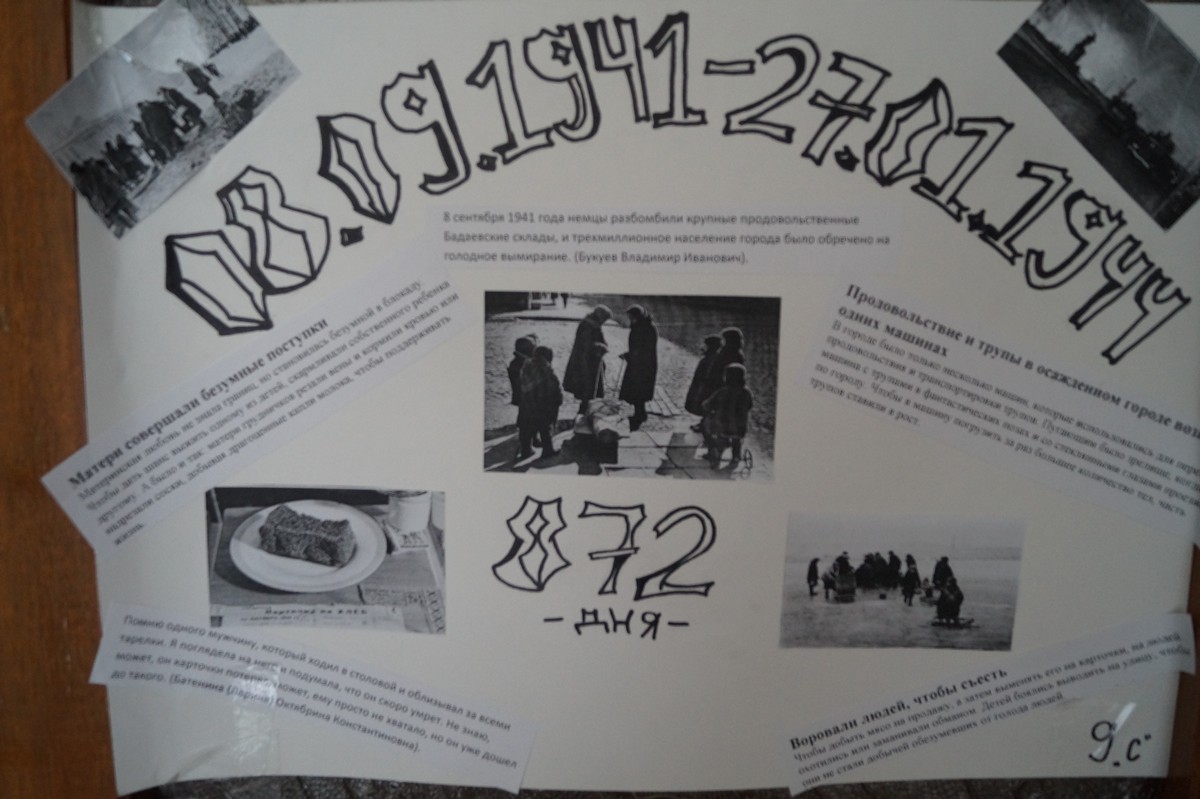 08.09.1941-27.01.1944
8 сентября 1941 года немцы разбомбили крупные продовольственные
Бадаевские склады, и трехмиллионное население города было обречено на
голодное вымирание. (Букуев Владимир Иванович).
Матери совершали безумные поступки
Материнская любовь не знала границ, но становилась безумной в блокаду.
Чтобы дать шанс выжить одному из детей, скармливали собственного ребенка
другому. А было и так: матери грудничков резали вены и кормили кровью или
надрезали соски, добывая драгоценные капли молока, чтобы поддерживать
жизнь.
Продовольствие и трупы в осажденном городе
одних машинах
В городе было только несколько машин, которые использовались для
продовольствия и транспортировки трупов. Пугающим было зрелище,
машина с трупами в фантастических позах и со стеклянными глазами
по городу. Чтобы в машину погрузить за раз большее количество тел, часть
трупов ставили в рост.
872
-ДНЯ-
Карточка на хлеб
Помню одного мужчину, который ходил в столовой и облизывал за всеми
тарелки. Я поглядела на него и подумала, что он скоро умрет. Не знаю,
может, он карточки потерял, может, ему просто не хватало, но он уже дошел
до такого. (Батенина Октябрина Константиновна).
Воровали людей, чтобы съесть
Чтобы добыть мясо на продажу, а затем выменять его на карточки, на людей
охотились или заманивали обманом. Детей боялись выводить на улицу, чтобы
они не стали добычей обезумевших от голода людей
9„С"